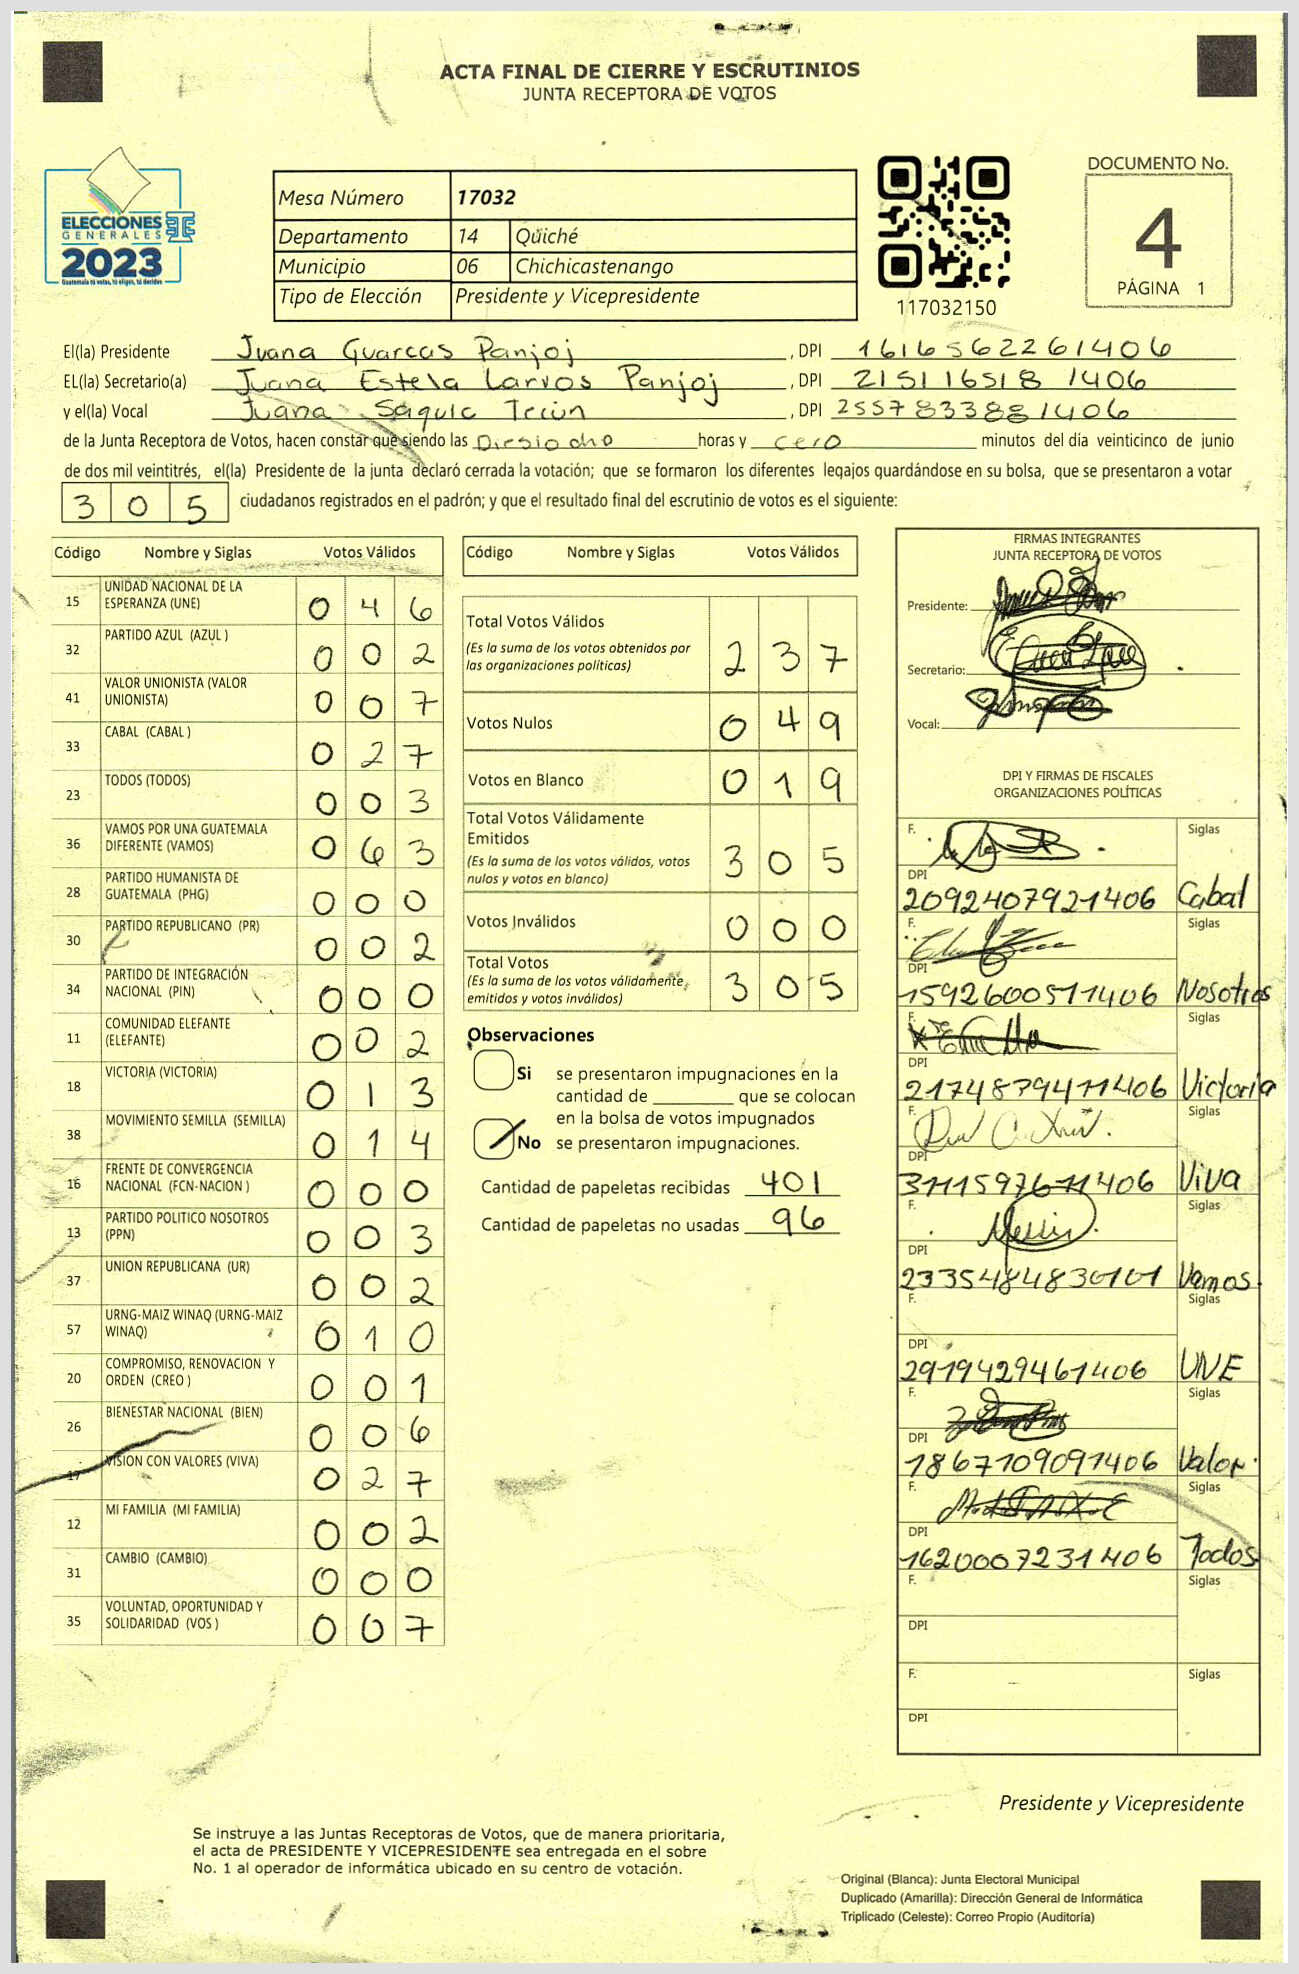 ACTA FINAL DE CIERRE Y ESCRUTINIOS
JUNTA RECEPTORA DE VOTOS
ELECCIONES
GENERALES
2023
Guatemala tú votas, tú eliges, tú decides
Mesa Número 17032
Departamento 14 Quiché
Municipio 06 Chichicastenango
Tipo de Elección Presidente y Vicepresidente
117032150
DOCUMENTO No.
4
PÁGINA 1
El(la) Presidente Juana Guarcas Panjoj, DPI 1616562261406
EL(la) Secretario(a) Juana Estela Larios Panjoj, DPI 2151165181406
y el(la) Vocal Juana Saquic Tecún, DPI 2557833881406
de la Junta Receptora de Votos, hacen constar que siendo las Diesiocho horas y cero minutos del día veinticinco de junio
de dos mil veintitrés, el(la) Presidente de la junta declaró cerrada la votación; que se formaron los diferentes legajos guardándose en su bolsa, que se presentaron a votar
305 ciudadanos registrados en el padrón; y que el resultado final del escrutinio de votos es el siguiente:
Código Nombre y Siglas Votos Válidos
15 UNIDAD NACIONAL DE LA ESPERANZA (UNE) 046
32 PARTIDO AZUL (AZUL ) 002
41 VALOR UNIONISTA (VALOR UNIONISTA) 007
33 CABAL (CABAL ) 027
23 TODOS (TODOS) 003
36 VAMOS POR UNA GUATEMALA DIFERENTE (VAMOS) 063
28 PARTIDO HUMANISTA DE GUATEMALA (PHG) 000
30 PARTIDO REPUBLICANO (PR) 002
34 PARTIDO DE INTEGRACIÓN NACIONAL (PIN) 000
11 COMUNIDAD ELEFANTE (ELEFANTE) 002
18 VICTORIA (VICTORIA) 013
38 MOVIMIENTO SEMILLA (SEMILLA) 014
16 FRENTE DE CONVERGENCIA NACIONAL (FCN-NACION ) 000
13 PARTIDO POLITICO NOSOTROS (PPN) 003
37 UNION REPUBLICANA (UR) 002
57 URNG-MAIZ WINAQ (URNG-MAIZ WINAQ) 010
20 COMPROMISO, RENOVACION Y ORDEN (CREO ) 001
26 BIENESTAR NACIONAL (BIEN) 006
17 VISION CON VALORES (VIVA) 027
12 MI FAMILIA (MI FAMILIA) 002
31 CAMBIO (CAMBIO) 000
35 VOLUNTAD, OPORTUNIDAD Y SOLIDARIDAD (VOS ) 007
Código Nombre y Siglas Votos Válidos
Total Votos Válidos 237
(Es la suma de los votos obtenidos por
las organizaciones políticas)
Votos Nulos 049
Votos en Blanco 019
Total Votos Válidamente
Emitidos 305
(Es la suma de los votos válidos, votos
nulos y votos en blanco)
Votos Inválidos 000
Total Votos 305
(Es la suma de los votos válidamente
emitidos y votos inválidos)
Observaciones
Si se presentaron impugnaciones en la
cantidad de ________ que se colocan
en la bolsa de votos impugnados
No se presentaron impugnaciones.
Cantidad de papeletas recibidas 401
Cantidad de papeletas no usadas 96
FIRMAS INTEGRANTES
JUNTA RECEPTORA DE VOTOS
Presidente:
Secretario:
Vocal:
DPI Y FIRMAS DE FISCALES
ORGANIZACIONES POLÍTICAS
F. Siglas
DPI
2092407921406 Cabal
F. Siglas
DPI
1592600511406 Nosotros
F. Siglas
DPI
2174879411406 Victoria
F. Siglas
DPI
3111597611406 Viva
F. Siglas
DPI
2335484830101 Vamos
F. Siglas
DPI
2919429461406 UNE
F. Siglas
DPI
1867109091406 Valor
F. Siglas
DPI
1620007231406 Todos
F. Siglas
DPI
F. Siglas
DPI
Presidente y Vicepresidente
Se instruye a las Juntas Receptoras de Votos, que de manera prioritaria,
el acta de PRESIDENTE Y VICEPRESIDENTE sea entregada en el sobre
No. 1 al operador de informática ubicado en su centro de votación.
Original (Blanca): Junta Electoral Municipal
Duplicado (Amarilla): Dirección General de Informática
Triplicado (Celeste): Correo Propio (Auditoría)